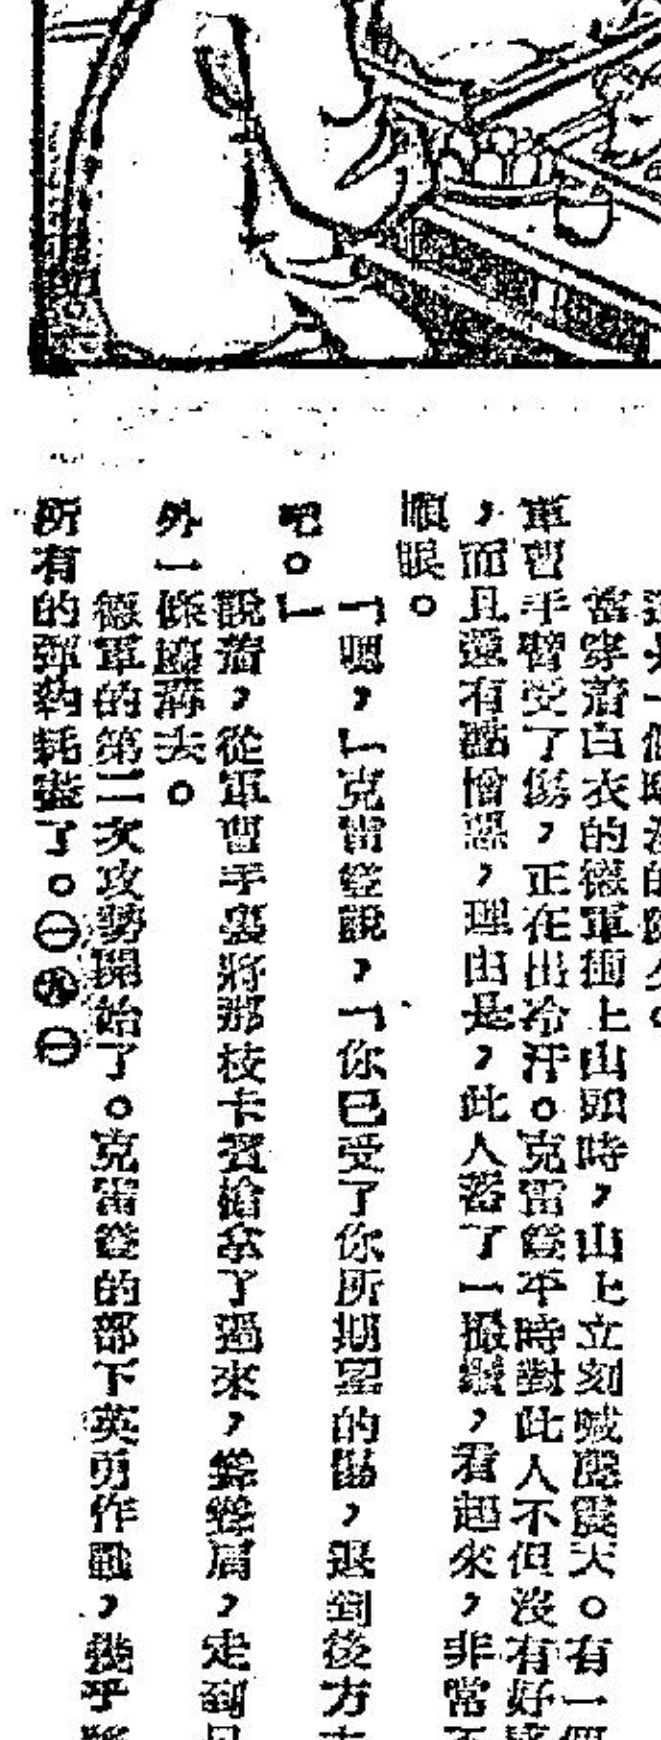 當穿着白衣的德軍衝上山頭時，山上立刻喊聲震天。有一個
軍曹手臂受了傷，正在出冷汗。克雷登平時對此人不但沒有好感
，而且還有點憎惡，理由是，此人蓄了一撮鬍，看起來，非常不
順眼。
「嗯，」克雷登說，「你已受了你所期望的傷，退到後方去
吧。」
說着，從軍曹手裏將那枝卡賓槍拿了過來，聳聳肩，走到另
外一條壕溝去。
德軍的第二次攻勢開始了。克雷登的部下英勇作戰，幾乎將
所有的彈藥耗盡了。㊀㊈㊀